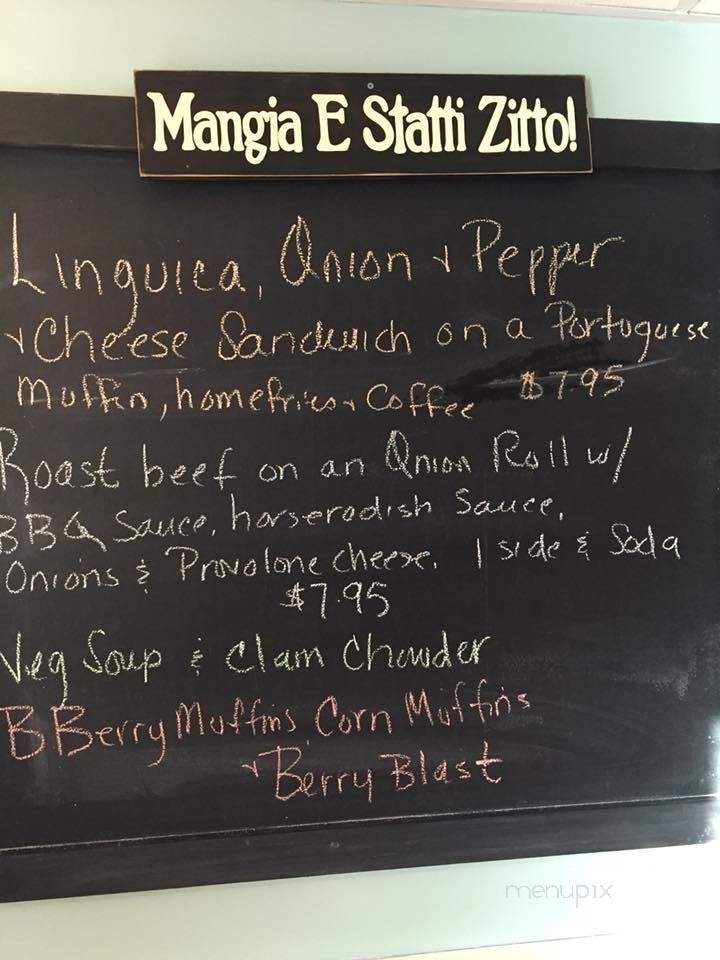 Mangia E Statti Zitto!
Linguica, Onion + Pepper
+ Cheese Sandwich on a Portuguese
Muffin, homefries + Coffee $7.95
Roast beef on an Onion Roll w/
BBQ Sauce, horseradish Sauce,
Onions & Provolone cheese. 1 side & Soda
$7.95
Veg Soup & Clam Chowder
BBerry Muffins, Corn Muffins
+ Berry Blast
menupix